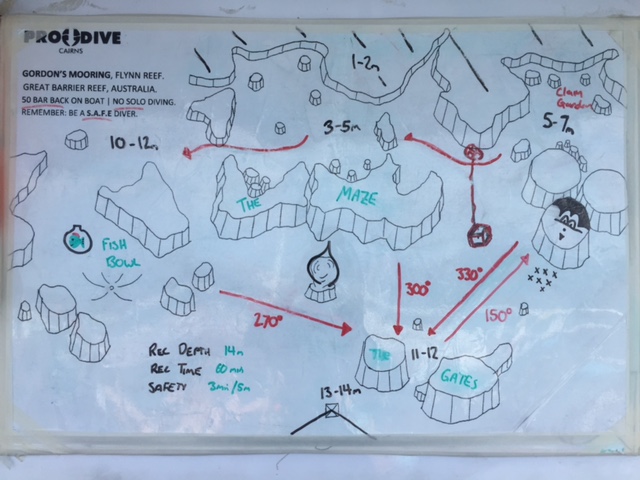 PRO DIVE
CAIRNS
GORDON'S MOORING, FLYNN REEF.
GREAT BARRIER REEF, AUSTRALIA.
50 BAR BACK ON BOAT | NO SOLO DIVING.
REMEMBER: BE A S.A.F.E DIVER.
1-2m
Clam
Garden
5-7m
3-5m
10-12m
THE MAZE
FISH
BOWL
300°
330°
150°
270°
REC DEPTH 14m
REC TIME 60 min
SAFETY 3mi/5m
THE
11-12
GATES
13-14m